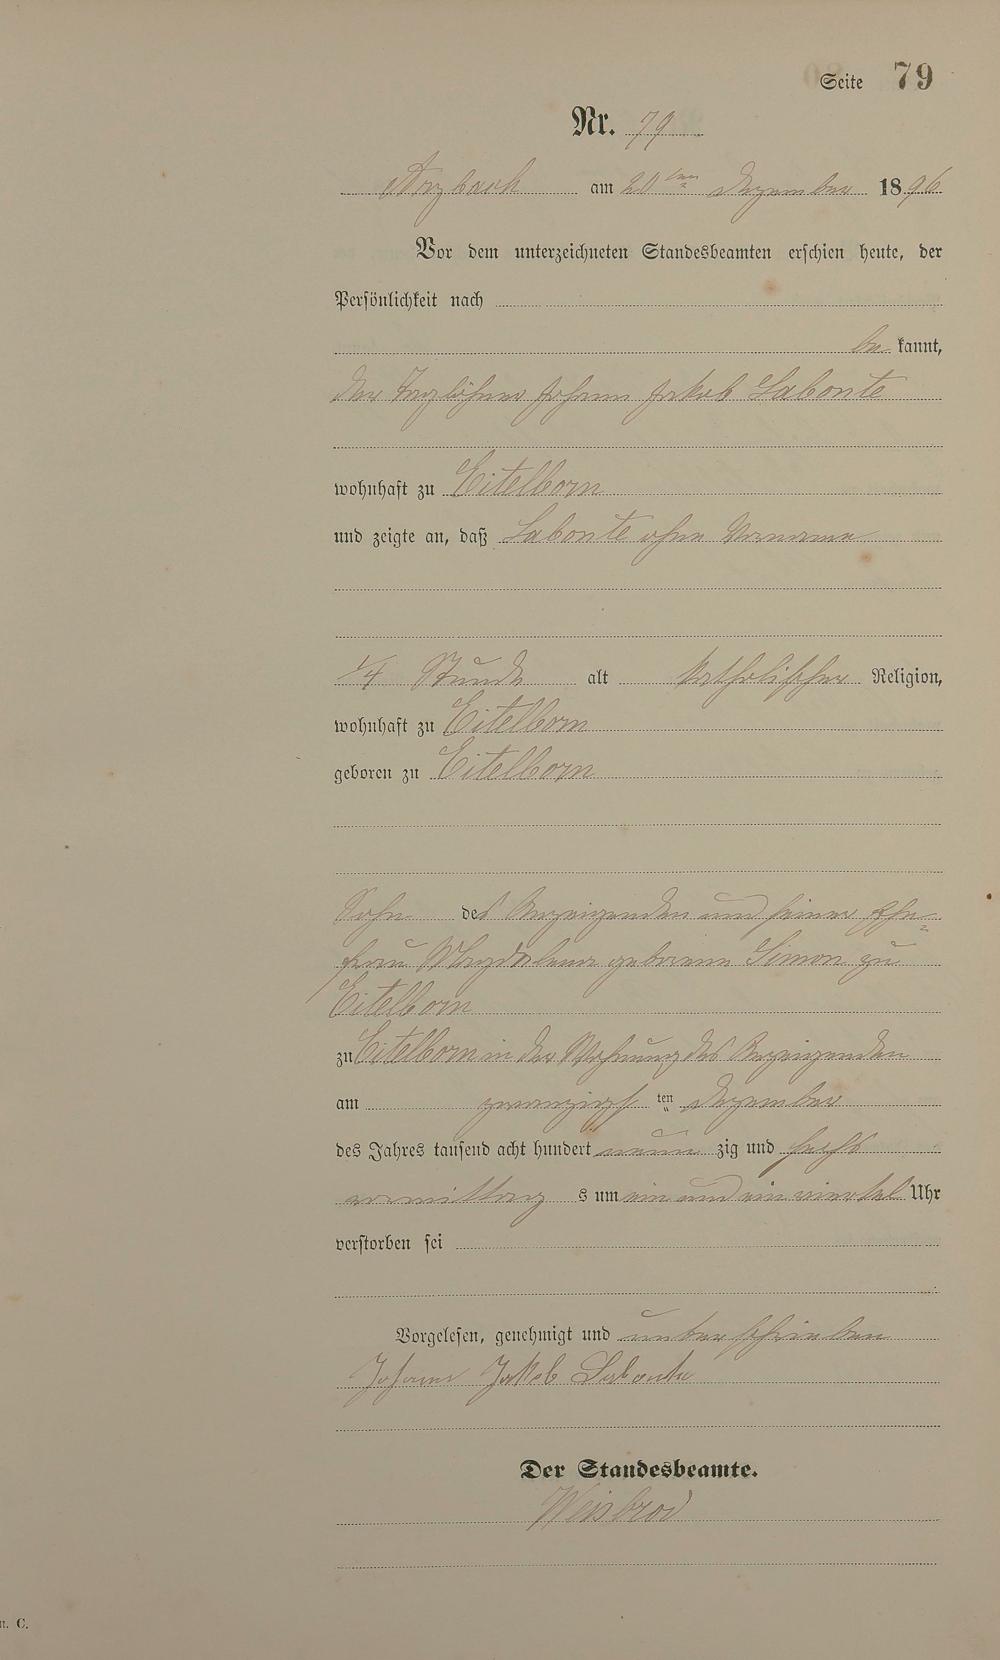 Seite 79
Nr. 79
Arzbach am 20ten Dezember 1896
Vor dem unterzeichneten Standesbeamten erschien heute, der
Persönlichkeit nach
be kannt,
der Taglöhner Johann Jakob Labonte
wohnhaft zu Eitelborn
und zeigte an, daß Labonte ohne Vorname
1/4 Stunde alt katholischer Religion,
wohnhaft zu Eitelborn
geboren zu Eitelborn
Sohn des Anzeigenden und seiner Ehe-
frau Magdalena geborene Simon zu
Eitelborn
zu Eitelborn in der Wohnung des Anzeigenden
am zwanzigst ten Dezember
des Jahres tausend acht hundert neun zig und sechs
vormittag s um ein und ein viertel Uhr
verstorben sei
Vorgelesen, genehmigt und unterschrieben
Johann Jakob Labonte
Der Standesbeamte.
Weisbrod
n. C.